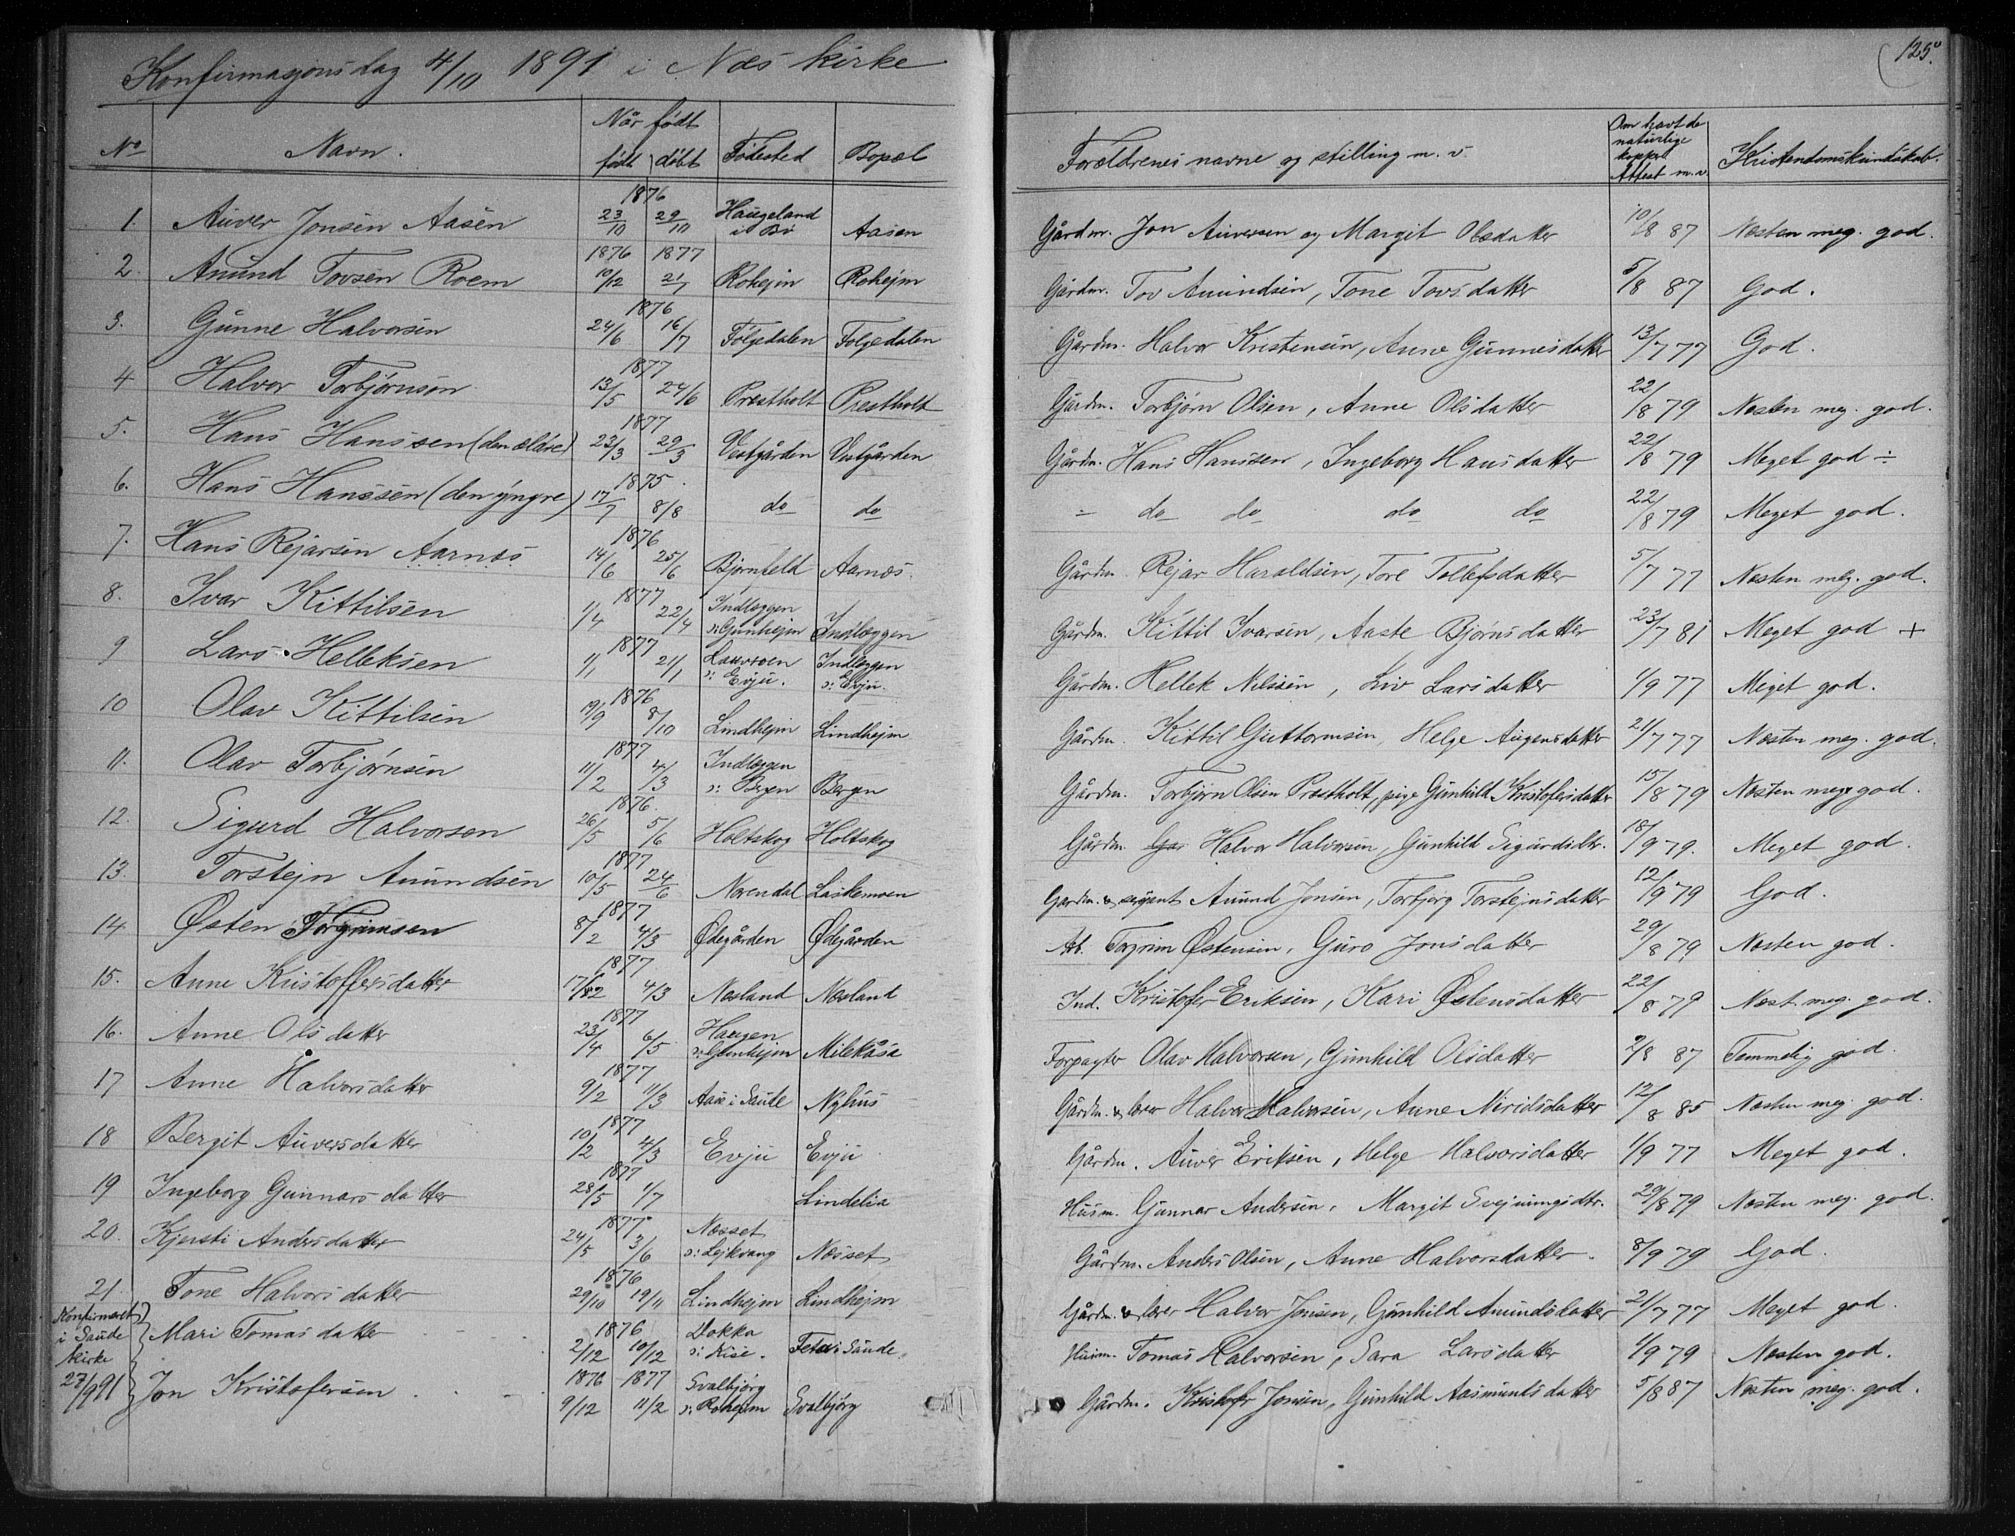 Konfirmasjonsdag 4/10 1891 i Næs kirke
125.
No Navn. Når født født døbt Fødested Bopæl Forældrenes navne og stilling m. v. Om havt de naturlige kopper Attest m. v. Kristendomskundskab.
1. Auver Jonsen Aasen 1876 23/10 29/10 Haugeland i Bø Aasen Gårdm. Jon Auversen og Margit Olsdatter 10/8 87 Næsten meg. god.
2. Amund Tovsen Roem 1876 10/12 1877 21/1 Rohejm Rohejm Gårdm. Tov Amundsen, Tone Tovsdatter 5/8 87 God.
3. Gunne Halvorsen 1876 24/6 16/7 Følgedalen Følgedalen Gårdm. Halvor Kristensen, Anne Gunnesdatter 13/7 77 God.
4 Halvor Torbjørnsøn 1877 13/5 24/6 Præstholt Præstholt Gårdm. Torbjørn Olsen, Anne Olsdatter 22/8 79 Næsten meg. god.
5. Hans Hanssen (den ældre) 1877 23/3 29/3 Vestgården Vestgården Gårdm. Hans Hanssen, Ingeborg Hansdatter 22/8 79 Meget god ÷
6. Hans Hanssen (den yngre) 1875. 17/7 8/8 do do - do do do do 22/8 79 Meget god.
7. Hans Rejarsen Aarnes 1876 14/6 25/6 Bjørnfeld Aarnæs. Gårdm. Rejar Haraldsen, Tore Tollefsdatter 5/7 77 Næsten meg. god.
8. Ivar Kittilsen 1877 1/4 22/4 Indlæggen v: Gunhejm Indlæggen Gårdm. Kittil Ivarsen, Aaste Bjørnsdatter 23/7 81 Meget god +
9 Lars Helleksen 1877 1/1 21/1 Laurvoen v: Evju. Indlæggen v: Evju. Gårdm. Hellek Nilssen, Liv Larsdatter 1/9 77 Meget god.
10 Olav Kittilsen 1876 19/9 8/10 Lindhejm Lindhejm Gårdm. Kittil Guttormsen, Helge Augensdatter 21/7 77 Næsten meg. god.
11. Olav Torbjørnsen 1877 11/2 4/3 Indlæggen v: Bergen Bergen Gårdm. Torbjørn Olsen Præstholt, pige Gunhild Kristofersdatter 15/8 79 Næsten meget god.
12. Sigurd Halvorsen 1876. 26/5 5/6 Holtskog Holtskog Gårdm. Halvor Halvorsen, Gunhild Sigurdsdtr. 18/9 79. Meget god.
13. Torstejn Amundsen 1877 10/5 24/6 Norendal Laskemoen Gardm. & sergent Amund Jonsen, Torbjørg Torstejnsdatter 12/9 79 God.
14. Østen Torgrimsen 1877 8/2 4/3 Ødegården Ødegården Arb. Torgrim Østensen, Guro Jonsdatter 29/8 79 Næsten god.
15. Anne Kristoffersdatter 1877 17/2 4/3 Næsland Næsland Ind. Kristofer Eriksen, Kari Østensdatter 22/8 79 Næst. meg. god.
16. Anne Olsdatter 1877 23/4 6/5 Haugen v: Gunhejm Milekåsa Forpagter Olav Halvorsen, Gunhild Olsdatter 2/8 87 Temmelig god.
17 Anne Halvorsdatter 1877 9/2 11/3 Aase i Saude Nyhus Gårdm. & lærer Halvor Halvorsen, Anne Niridsdatter 12/8 85 Næsten meg. god.
18 Bergit Auversdatter 1877 10/2 4/3 Evju Evju Gårdm. Auver Eriksen, Helge Halvorsdatter 1/9 77 Meget god.
19 Ingeborg Gunnarsdatter 1877 28/5 1/7 Lindelia Husm. Gunnar Andersen, Margit Svejnungsdtr. 29/8 79 Næsten meg. god.
20. Kjersti Andersdatter 1877 24/5 3/6 Næsset v: Lejkvang Næsset Gårdm. Anders Olsen, Anne Halvorsdatter. 8/9 79 God.
21. Tone Halvorsdatter 1876 29/10 19/11 Lindhejm Lindhejm Gårdm. & lærer Halvor Jonsen, Gunhild Amundsdatter 21/7 77 Meget god.
Konfirmeret i Saude kirke 27/9 91
Mari Tomasdatter 1876 2/12 10/12 Dokka v: Kise. Feta i Saude. Husm. Tomas Halvorsen, Sara Larsdatter 1/9 79 Næsten god.
Jon Kristofersen 1876 9/12 1877 11/2 Svalbjørg v: Rohejm Svalbjørg Gårdm. Kristofer Jonsen, Gunhild Aasmundsdatter 5/8 87 Næsten meg. god.